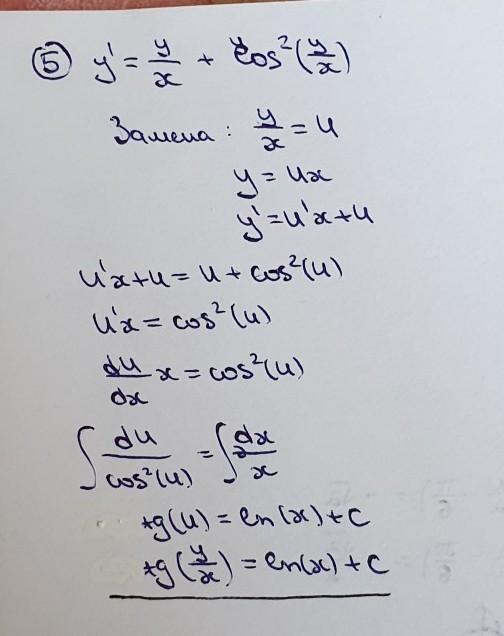 ⑤ y' = y/x + cos²(y/x)
Замена: y/x = u
y = ux
y' = u'x + u
u'x + u = u + cos²(u)
u'x = cos²(u)
du/dx x = cos²(u)
∫ du/cos²(u) = ∫ dx/x
tg(u) = ln(x) + c
tg(y/x) = ln(x) + c